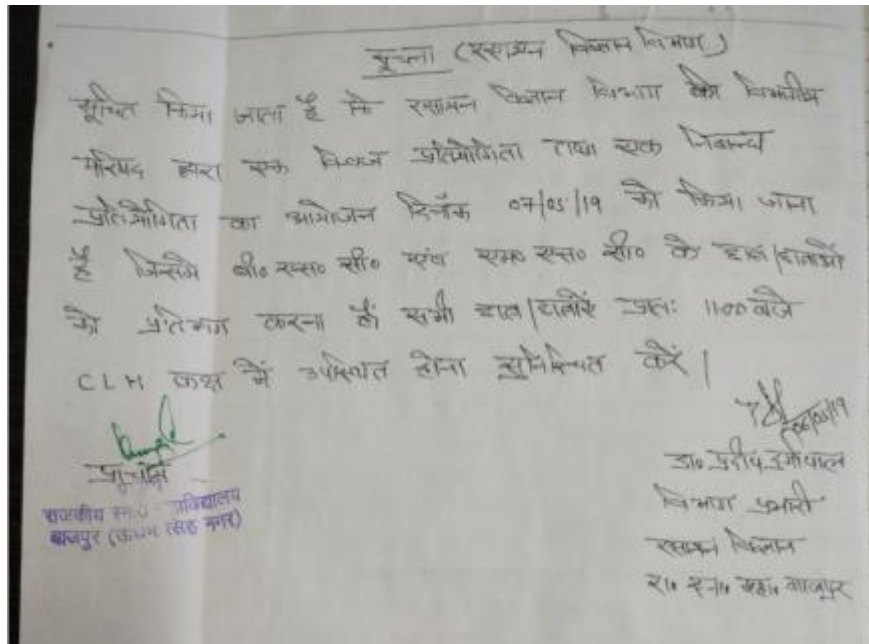 सूचना (रसायन विज्ञान विभाग)
सूचित किया जाता है कि रसायन विज्ञान विभाग की विभागीय
परिषद द्वारा एक क्विज प्रतियोगिता तथा एक निबन्ध
प्रतियोगिता का आयोजन दिनाँक 07/05/19 को किया जाना
है जिसमें बी० एस० सी० एवं एम० एस० सी० के छात्र/छात्राओं
को प्रतिभाग करना है सभी छात्र/छात्रायें प्रातः 11:00 बजे
CLH कक्ष में उपस्थित होना सुनिश्चित करें |
06/05/19
प्राचार्य
राजकीय स्ना०
बाजपुर (ऊधम सिंह नगर)
डा० प्रदीप दुर्गापाल
विभाग प्रभारी
रसायन विज्ञान
रा० स्ना० महा० बाजपुर